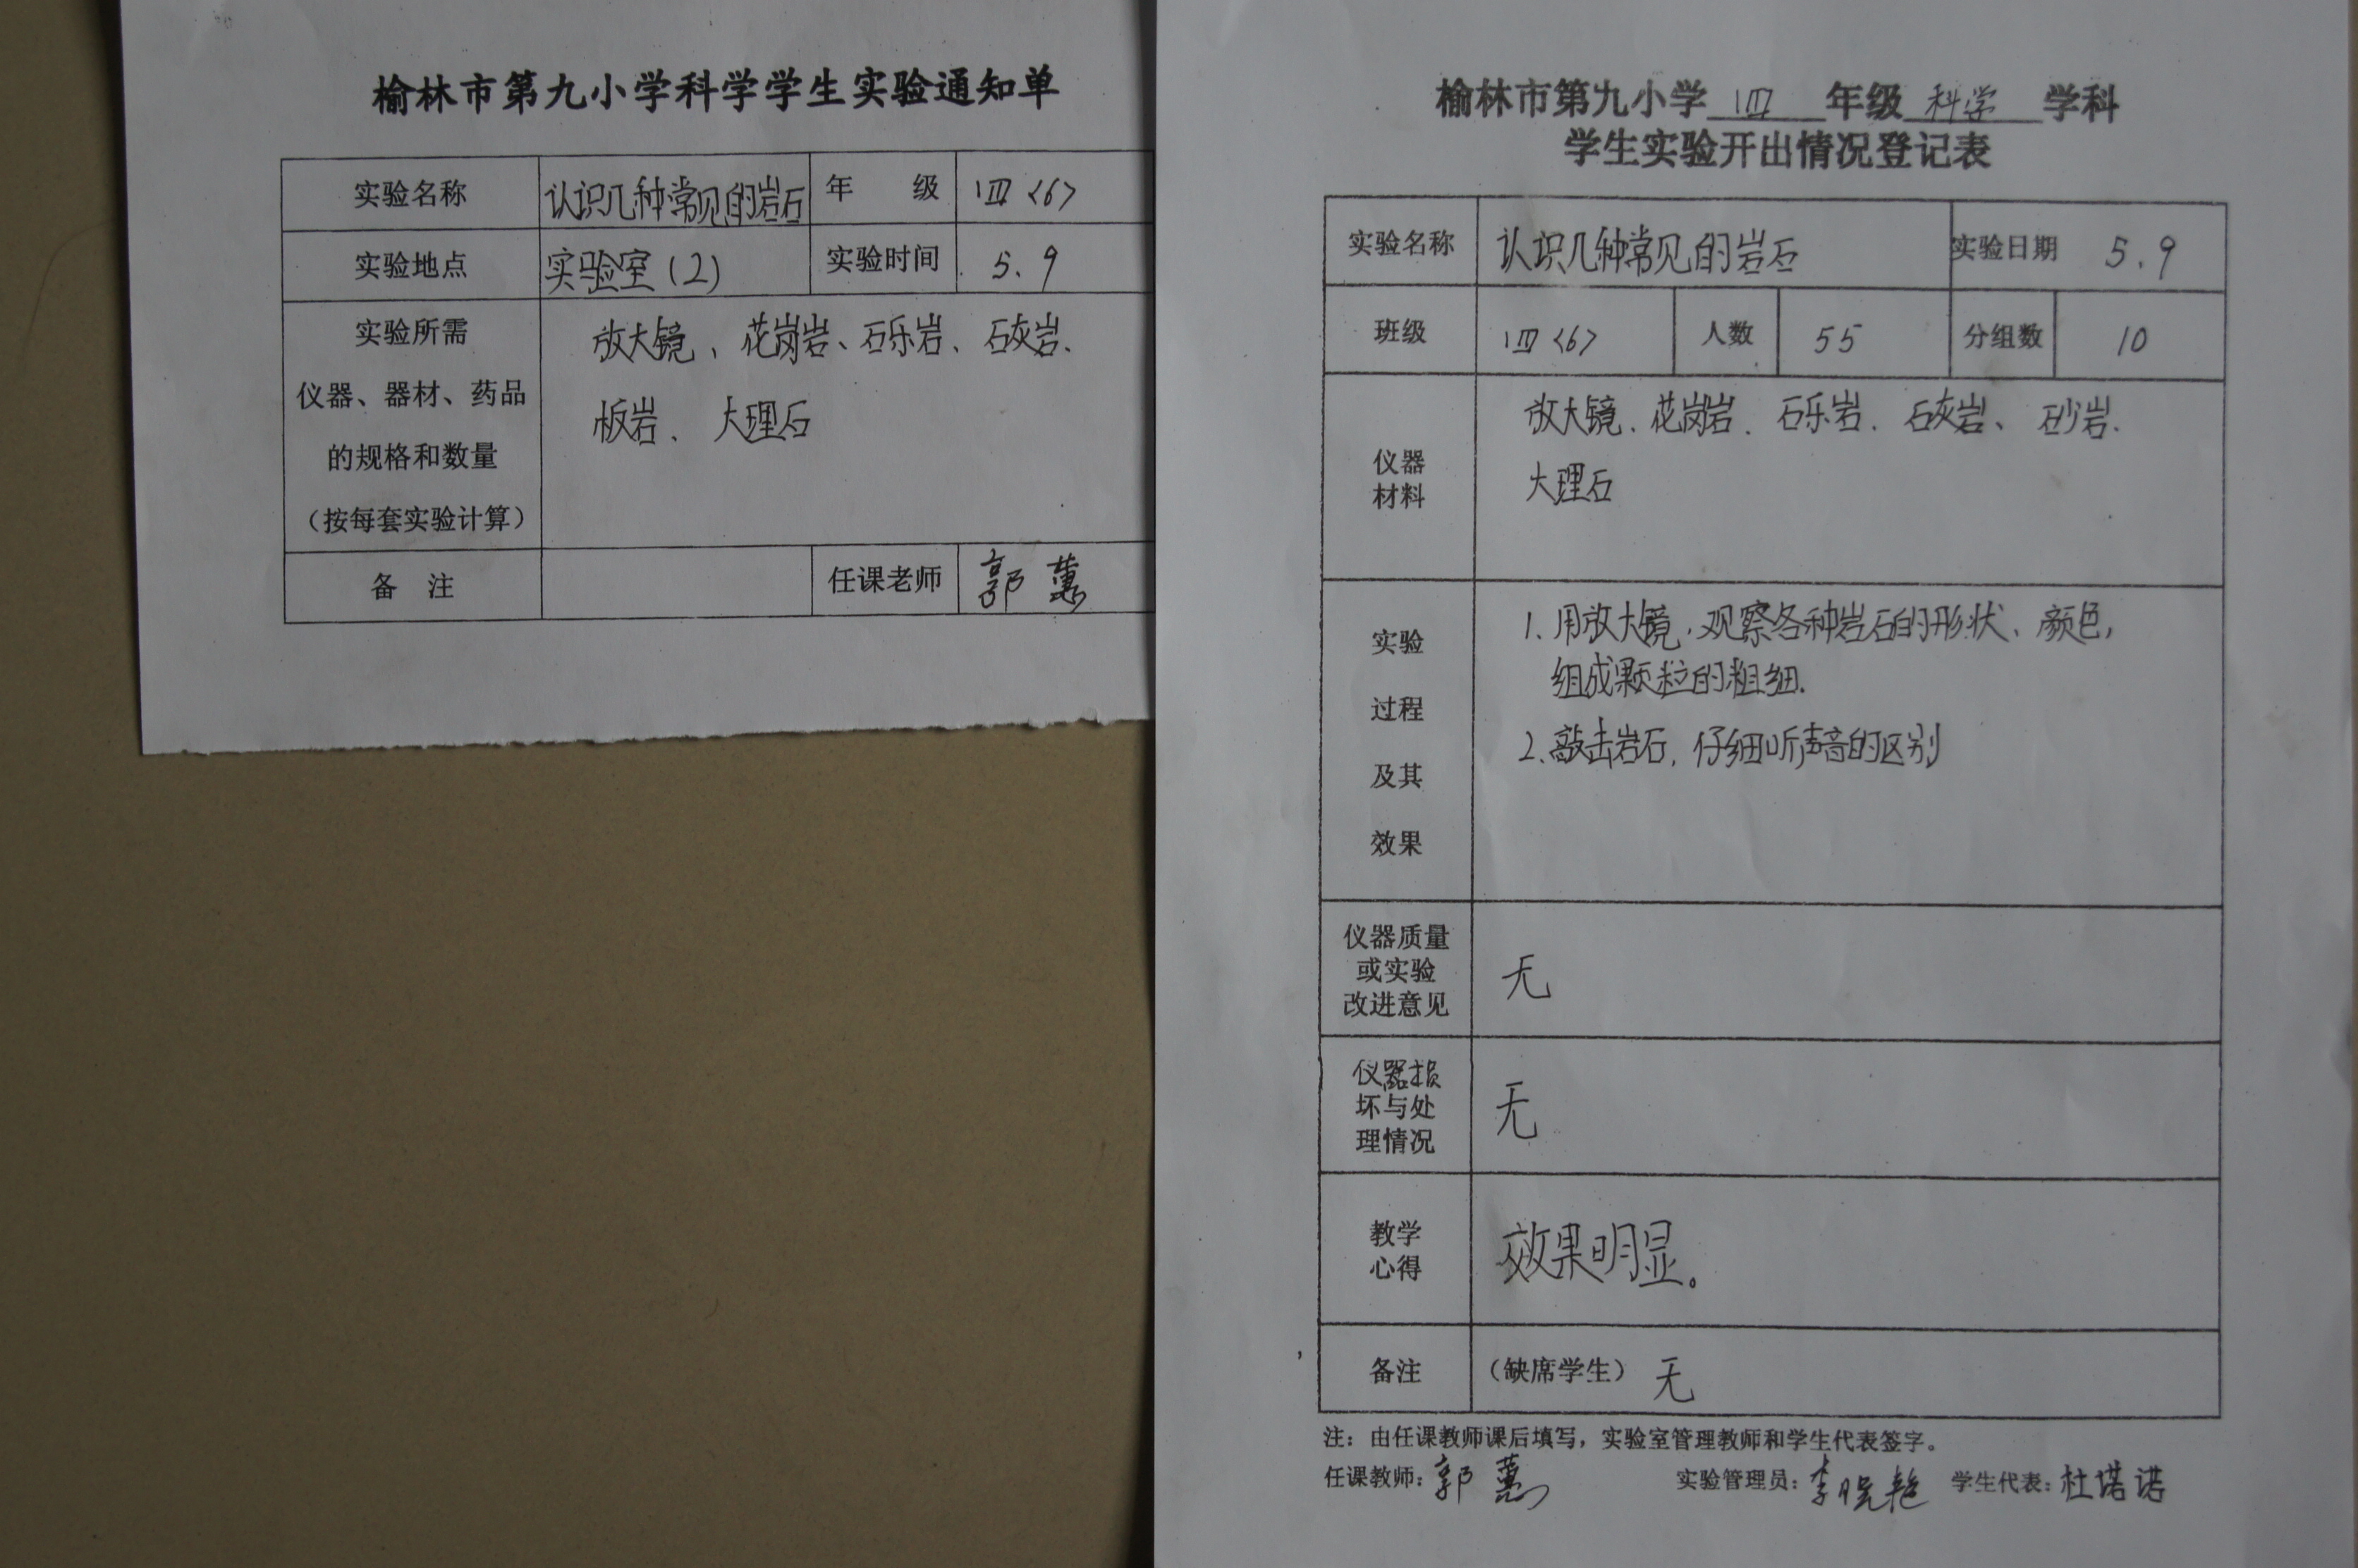 榆林市第九小学科学学生实验通知单
实验名称 认识几种常见的岩石 年 级 四<6>
实验地点 实验室(2) 实验时间 5.9
实验所需
仪器、器材、药品
的规格和数量
(按每套实验计算)
放大镜、花岗岩、石乐岩、石灰岩、
板岩、大理石
备 注 任课老师 郭蕙
榆林市第九小学 四 年级 科学 学科
学生实验开出情况登记表
实验名称 认识几种常见的岩石 实验日期 5.9
班级 四<6> 人数 55 分组数 10
仪器
材料
放大镜、花岗岩、石乐岩、石灰岩、砂岩、
大理石
实验
过程
及其
效果
1、用放大镜,观察各种岩石的形状、颜色,
组成颗粒的粗细.
2、敲击岩石,仔细听声音的区别
仪器质量
或实验
改进意见
无
仪器损
坏与处
理情况
无
教学
心得
效果明显。
备注 (缺席学生) 无
注:由任课教师课后填写,实验室管理教师和学生代表签字。
任课教师:郭蕙 实验管理员:李晓艳 学生代表:杜塔诺